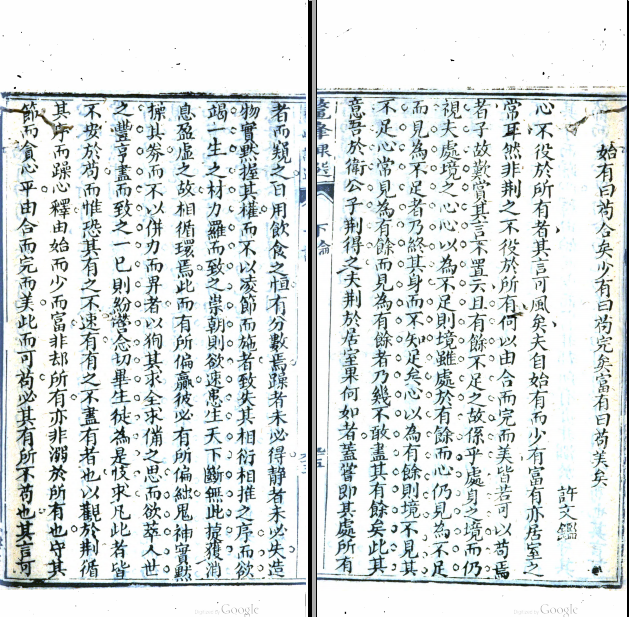 始有曰苟合矣少有曰苟完矣富有曰苟美矣
許文鑑
心不役於所有者其言可風矣夫自始有而少有富有亦居室之
常耳然非荆之不役於所有何以由合而完而美皆若可以苟焉
者子故歎賞其言不置云且有餘不足之故係乎處身之境而仍
視夫處境之心心以為不足則境雖處於有餘而心仍見為不足
而見為不足者乃終其身而不知足矣心以為有餘則境不見其
不足心常見為有餘而見為有餘者乃幾不敢盡其有餘矣此其
意吾於衛公子荆得之夫荆於居室果何如者蓋嘗即其處所有
鼇峰課選
下論
者而窺之日用飲食之恒有分數焉躁者未必得静者未必失造
物實默握其權而不以凌節而施者致失其相衍相推之序而欲
竭一生之材力羅而致之崇朝則欲速愚生天下斷無此據獲消
息盈虛之故相循環焉此而有所偏贏彼必有所偏絀鬼神實默
操其券而不以併力而昇者以徇其求全求備之思而欲萃人世
之豐亨盡而致之一已則紛營念切畢生徒為是忮求凡此者皆
不安於苟而惟恐其有之不速有有之不盡有者也以觀於荆循
其序而躁心釋由始而少而富非却所有亦非溺於所有也守其
節而貪心平由合而完而美此而可苟必其有所不苟也其言可
Google
Google